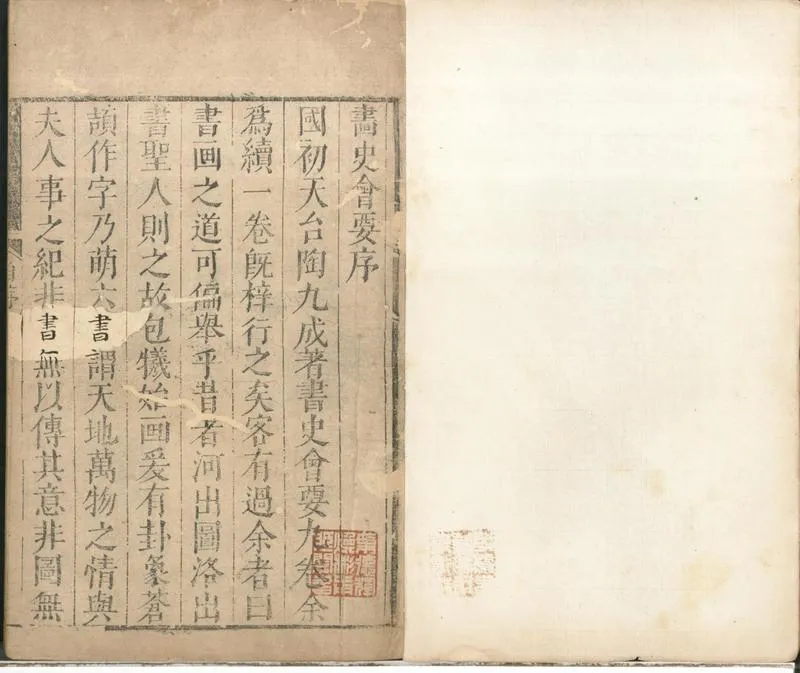 畵史會要序
國初天台陶九成著書史會要九卷余
爲續一卷旣梓行之矣客有過余者曰
書画之道可偏舉乎昔者河出圖洛出
書聖人則之故包犧始画爰有卦象蒼
頡作字乃萌六書謂天地萬物之情與
夫人事之紀非書無以傳其意非圖無
自序